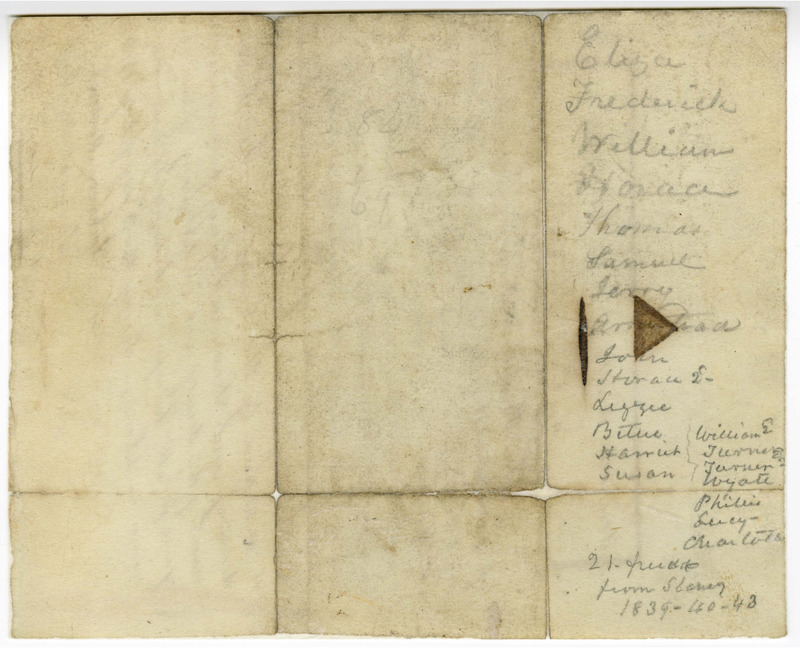 84
69
Eliza
Frederick
William
Horace
Thomas
Samuel
Jerry
Armistead
John
Horace 2-
Lizzie
Betsie
Harriet
Susan
William E
Turner
Turner
Wyatt
Phillis
Lucy-
Charlotte
21- freed
from Slavery
1839-40-43